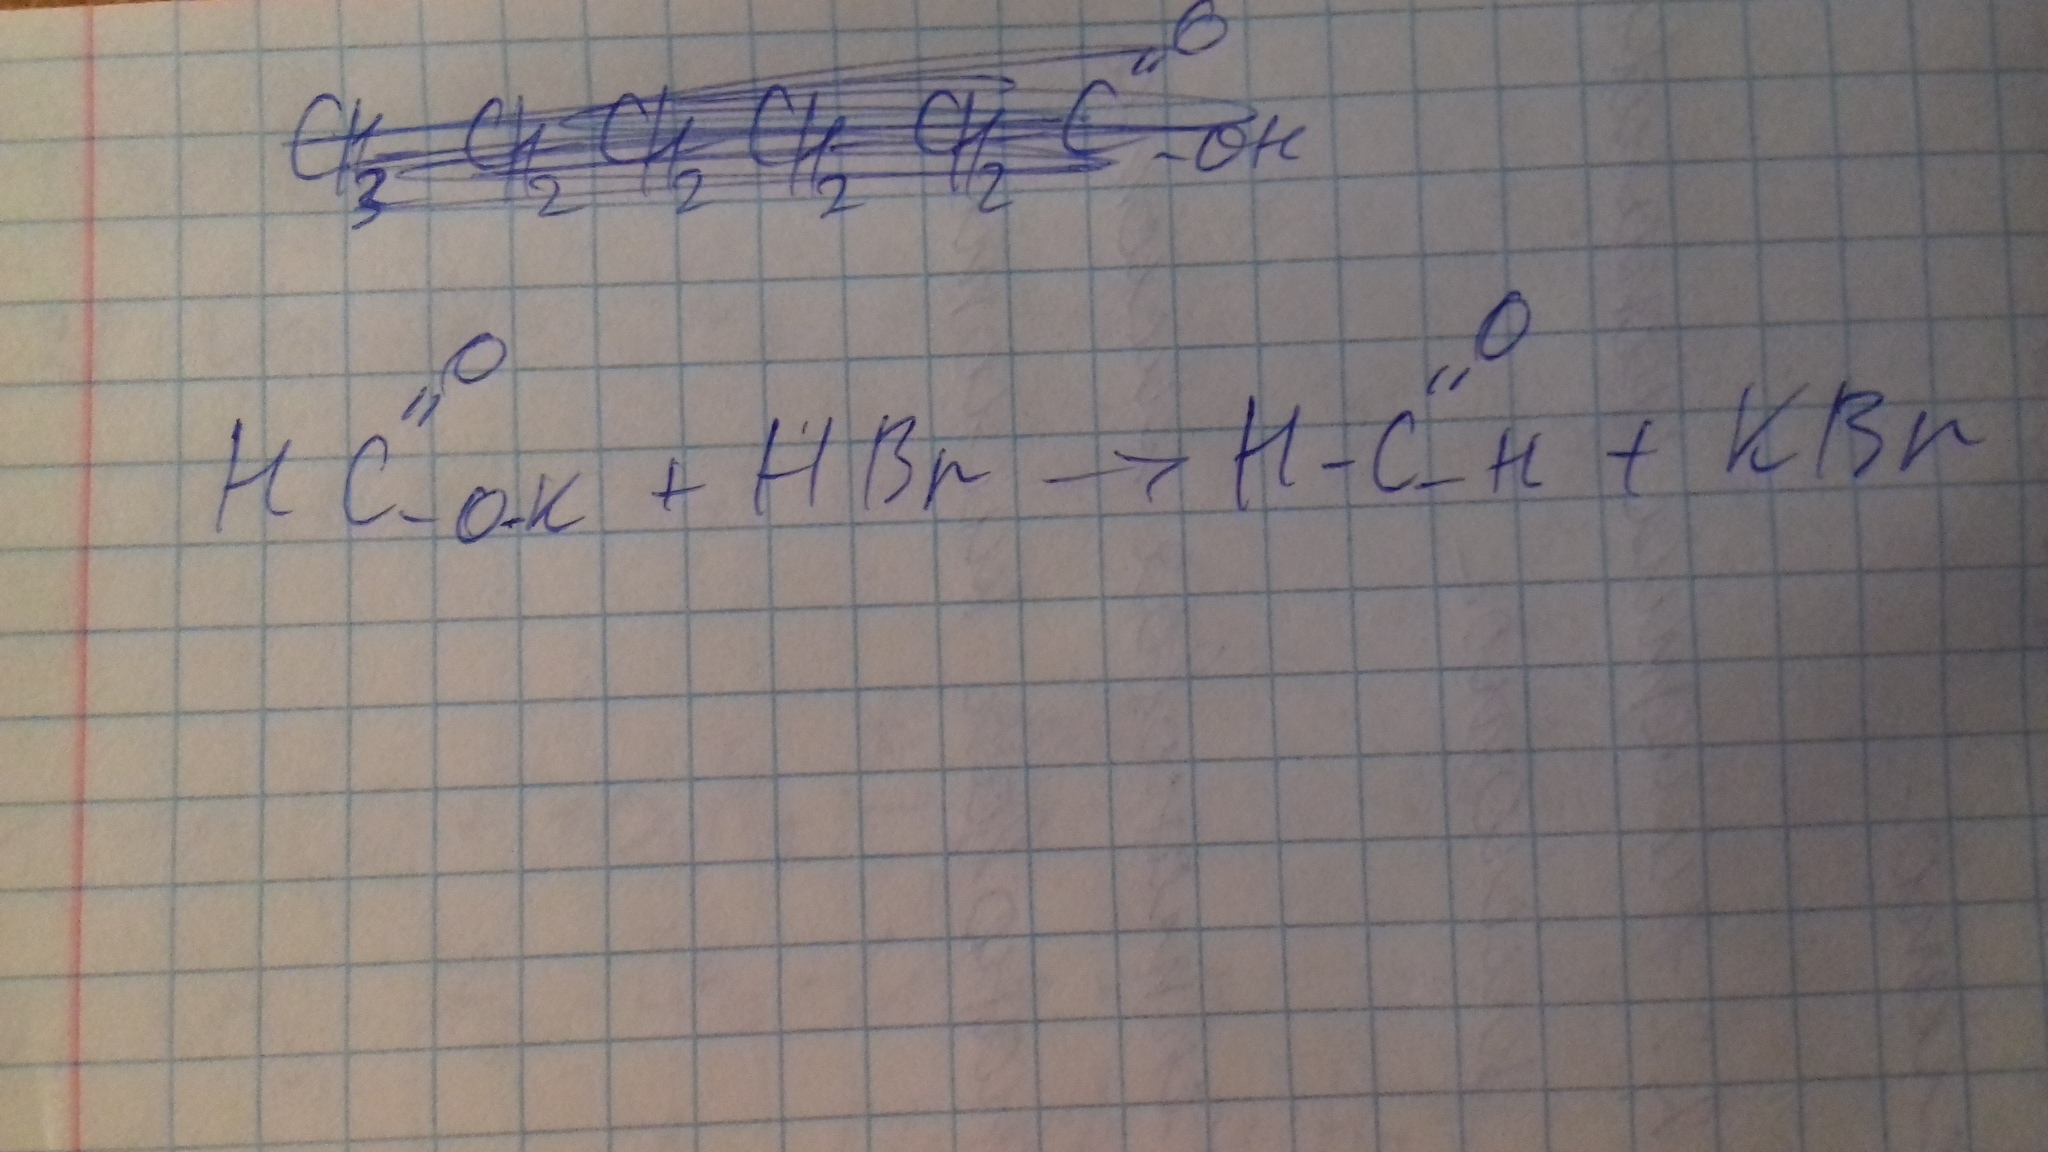 CH3 - CH2 CH2 CH2 CH2 C =O -OH
H C =O -O-K + HBr → H-C =O -H + KBr